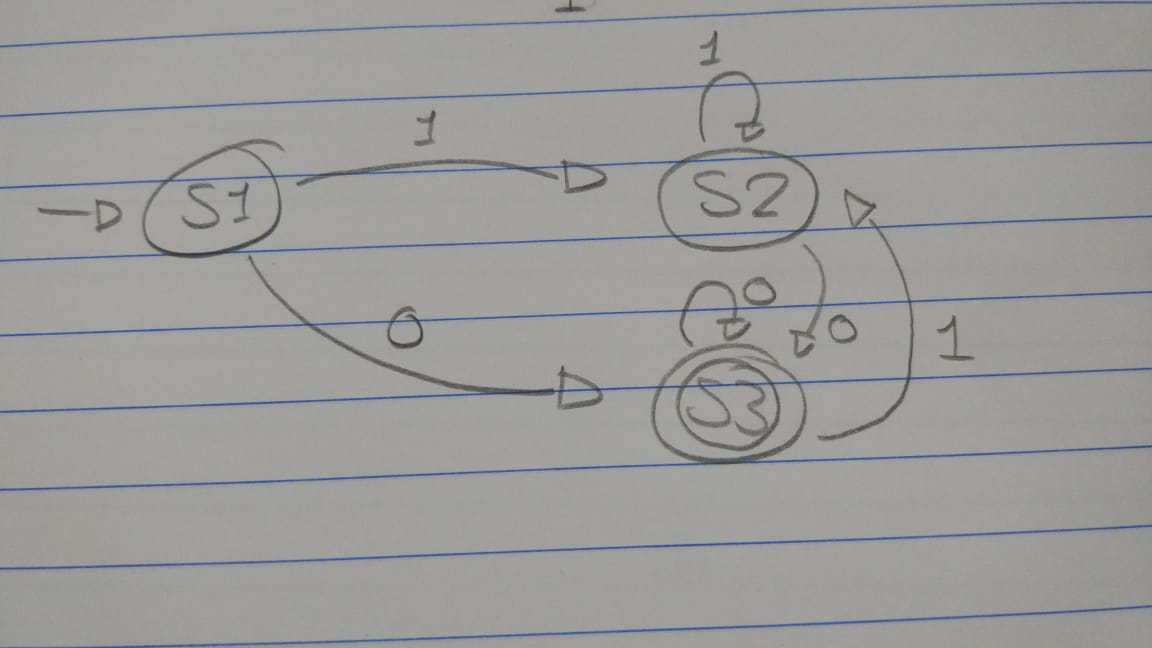 1
1
S1
S2
0
0
0
1
S3